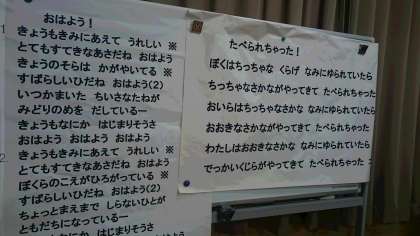 おはよう!
1
きょうもきみにあえて うれしい ※
とてもすてきなあさだね おはよう
きょうのそらは かがやいてる ※
すばらしいひだね おはよう(2)
いつかまいた ちいさなたねが
みどりのめを だしているー
きょうもなにか はじまりそうさ
おはよう おはよう おはよう
2
きょうもきみにあえて うれしい ※
とてもすてきなあさだね おはよう
ぼくらのこえがひろがっている ※
すばらしいひだね おはよう(2)
ちょっとまえまで しらないひとが
ともだちになっているー
きょうもなにか はじまりそうさ
たべられちゃった!
ぼくはちっちゃな くらげ なみにゆられていたら
ちっちゃなさかながやってきて たべられちゃった
おいらはちっちゃなさかな なみにゆられていたら
おおきなさかながやってきて たべられちゃった
わたしはおおきなさかな なみにゆられていたら
でっかいくじらがやってきて たべられちゃった